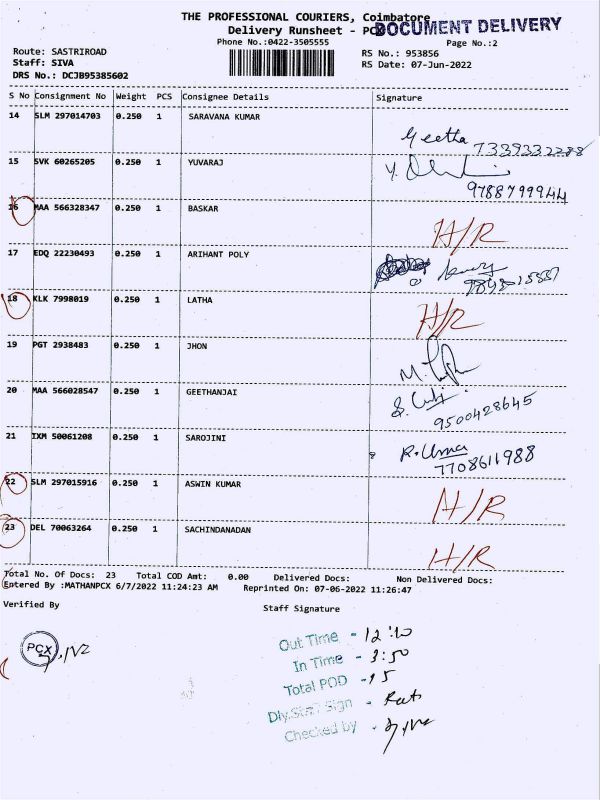 THE PROFESSIONAL COURIERS, Coimbatore
DOCUMENT DELIVERY
Delivery Runsheet - PCX
Phone No.:0422-3505555
Page No.:2
Route: SASTRIROAD
RS No.: 953856
Staff: SIVA
RS Date: 07-Jun-2022
DRS No.: DCJB95385602
S No Consignment No Weight PCS Consignee Details Signature
14 SLM 297014703 0.250 1 SARAVANA KUMAR
Geetha 7339332288
15 SVK 60265205 0.250 1 YUVARAJ
9788799944
16 MAA 566328347 0.250 1 BASKAR
H/R
17 EDQ 22230493 0.250 1 ARIHANT POLY
18 KLK 7998019 0.250 1 LATHA
H/R
19 PGT 2938483 0.250 1 JHON
20 MAA 566028547 0.250 1 GEETHANJAI
9500428645
21 IXM 50061208 0.250 1 SAROJINI
R. Uma
7708611988
22 SLM 297015916 0.250 1 ASWIN KUMAR
H/R
23 DEL 70063264 0.250 1 SACHINDANADAN
H/R
Total No. Of Docs: 23 Total COD Amt: 0.00 Delivered Docs: Non Delivered Docs:
Entered By :MATHANPCX 6/7/2022 11:24:23 AM Reprinted On: 07-06-2022 11:26:47
Verified By
Staff Signature
PCX
Out Time - 12:10
In Time - 3:50
Total POD - 15
Dly.Staff Sign -
Checked by -